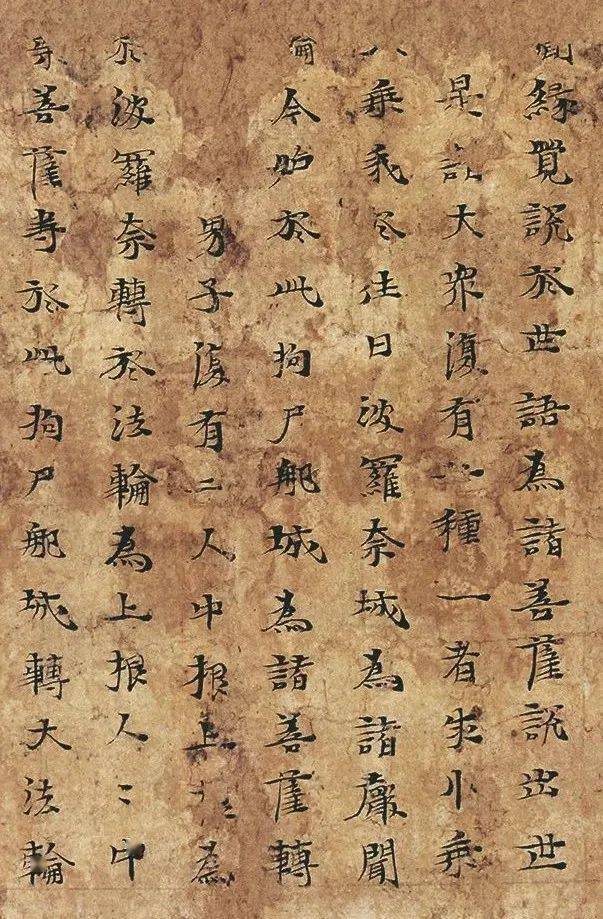 緣覺說於世語為諸菩薩說出世
是諸大眾復有二種一者求小乘
乘我於往日波羅奈城為諸聲聞
今始於此拘尸那城為諸菩薩轉
男子復有二人中根上為
波羅奈轉於法輪為上根人〻中
菩薩等於此拘尸那城轉大法輪